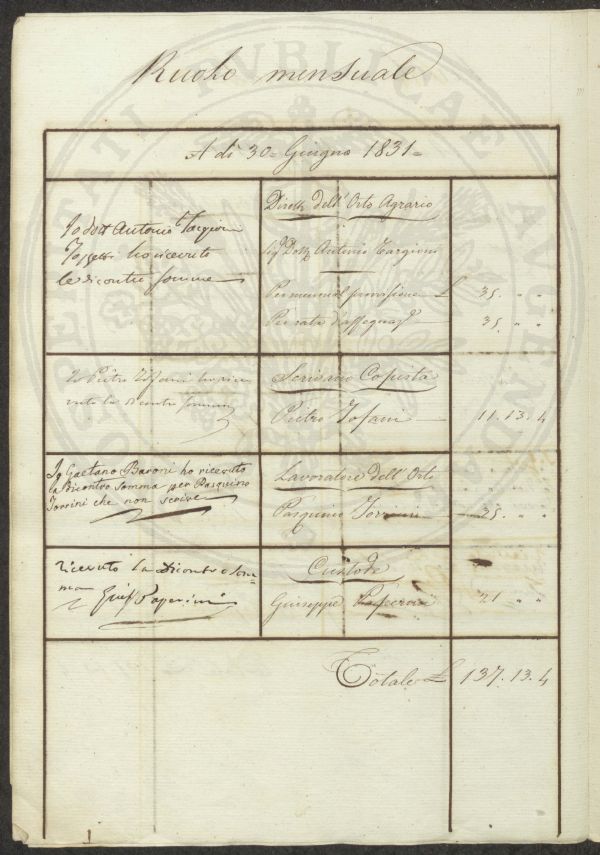 Ruolo mensuale
A dì 30= Giugno 1831=
Io Dott Antonio Targioni
Tozzetti ho ricevuto
le dicontro somme
Dirett. dell'Orto Agrario
Sig. Dott. Antonio Targioni
Per mensual provvisione £ 35. " "
Per rata d'assegnaz. 35. " "
Io Pietro Tofani ho rice
vuto la dicontro somma
Scrivano Copista
Pietro Tofani 11.13.4
Io Gaetano Baroni ho ricevuto
la Dicontro somma per Pasquino
Torrini che non scrive
Lavoratore dell'Orto
Pasquino Torrini 35. " "
ricevuto la Dicontro som=
ma
Gius. Paperini
Custode
Giuseppe Paperini 21 " "
Totale £ 137.13.4
PVBLICAE